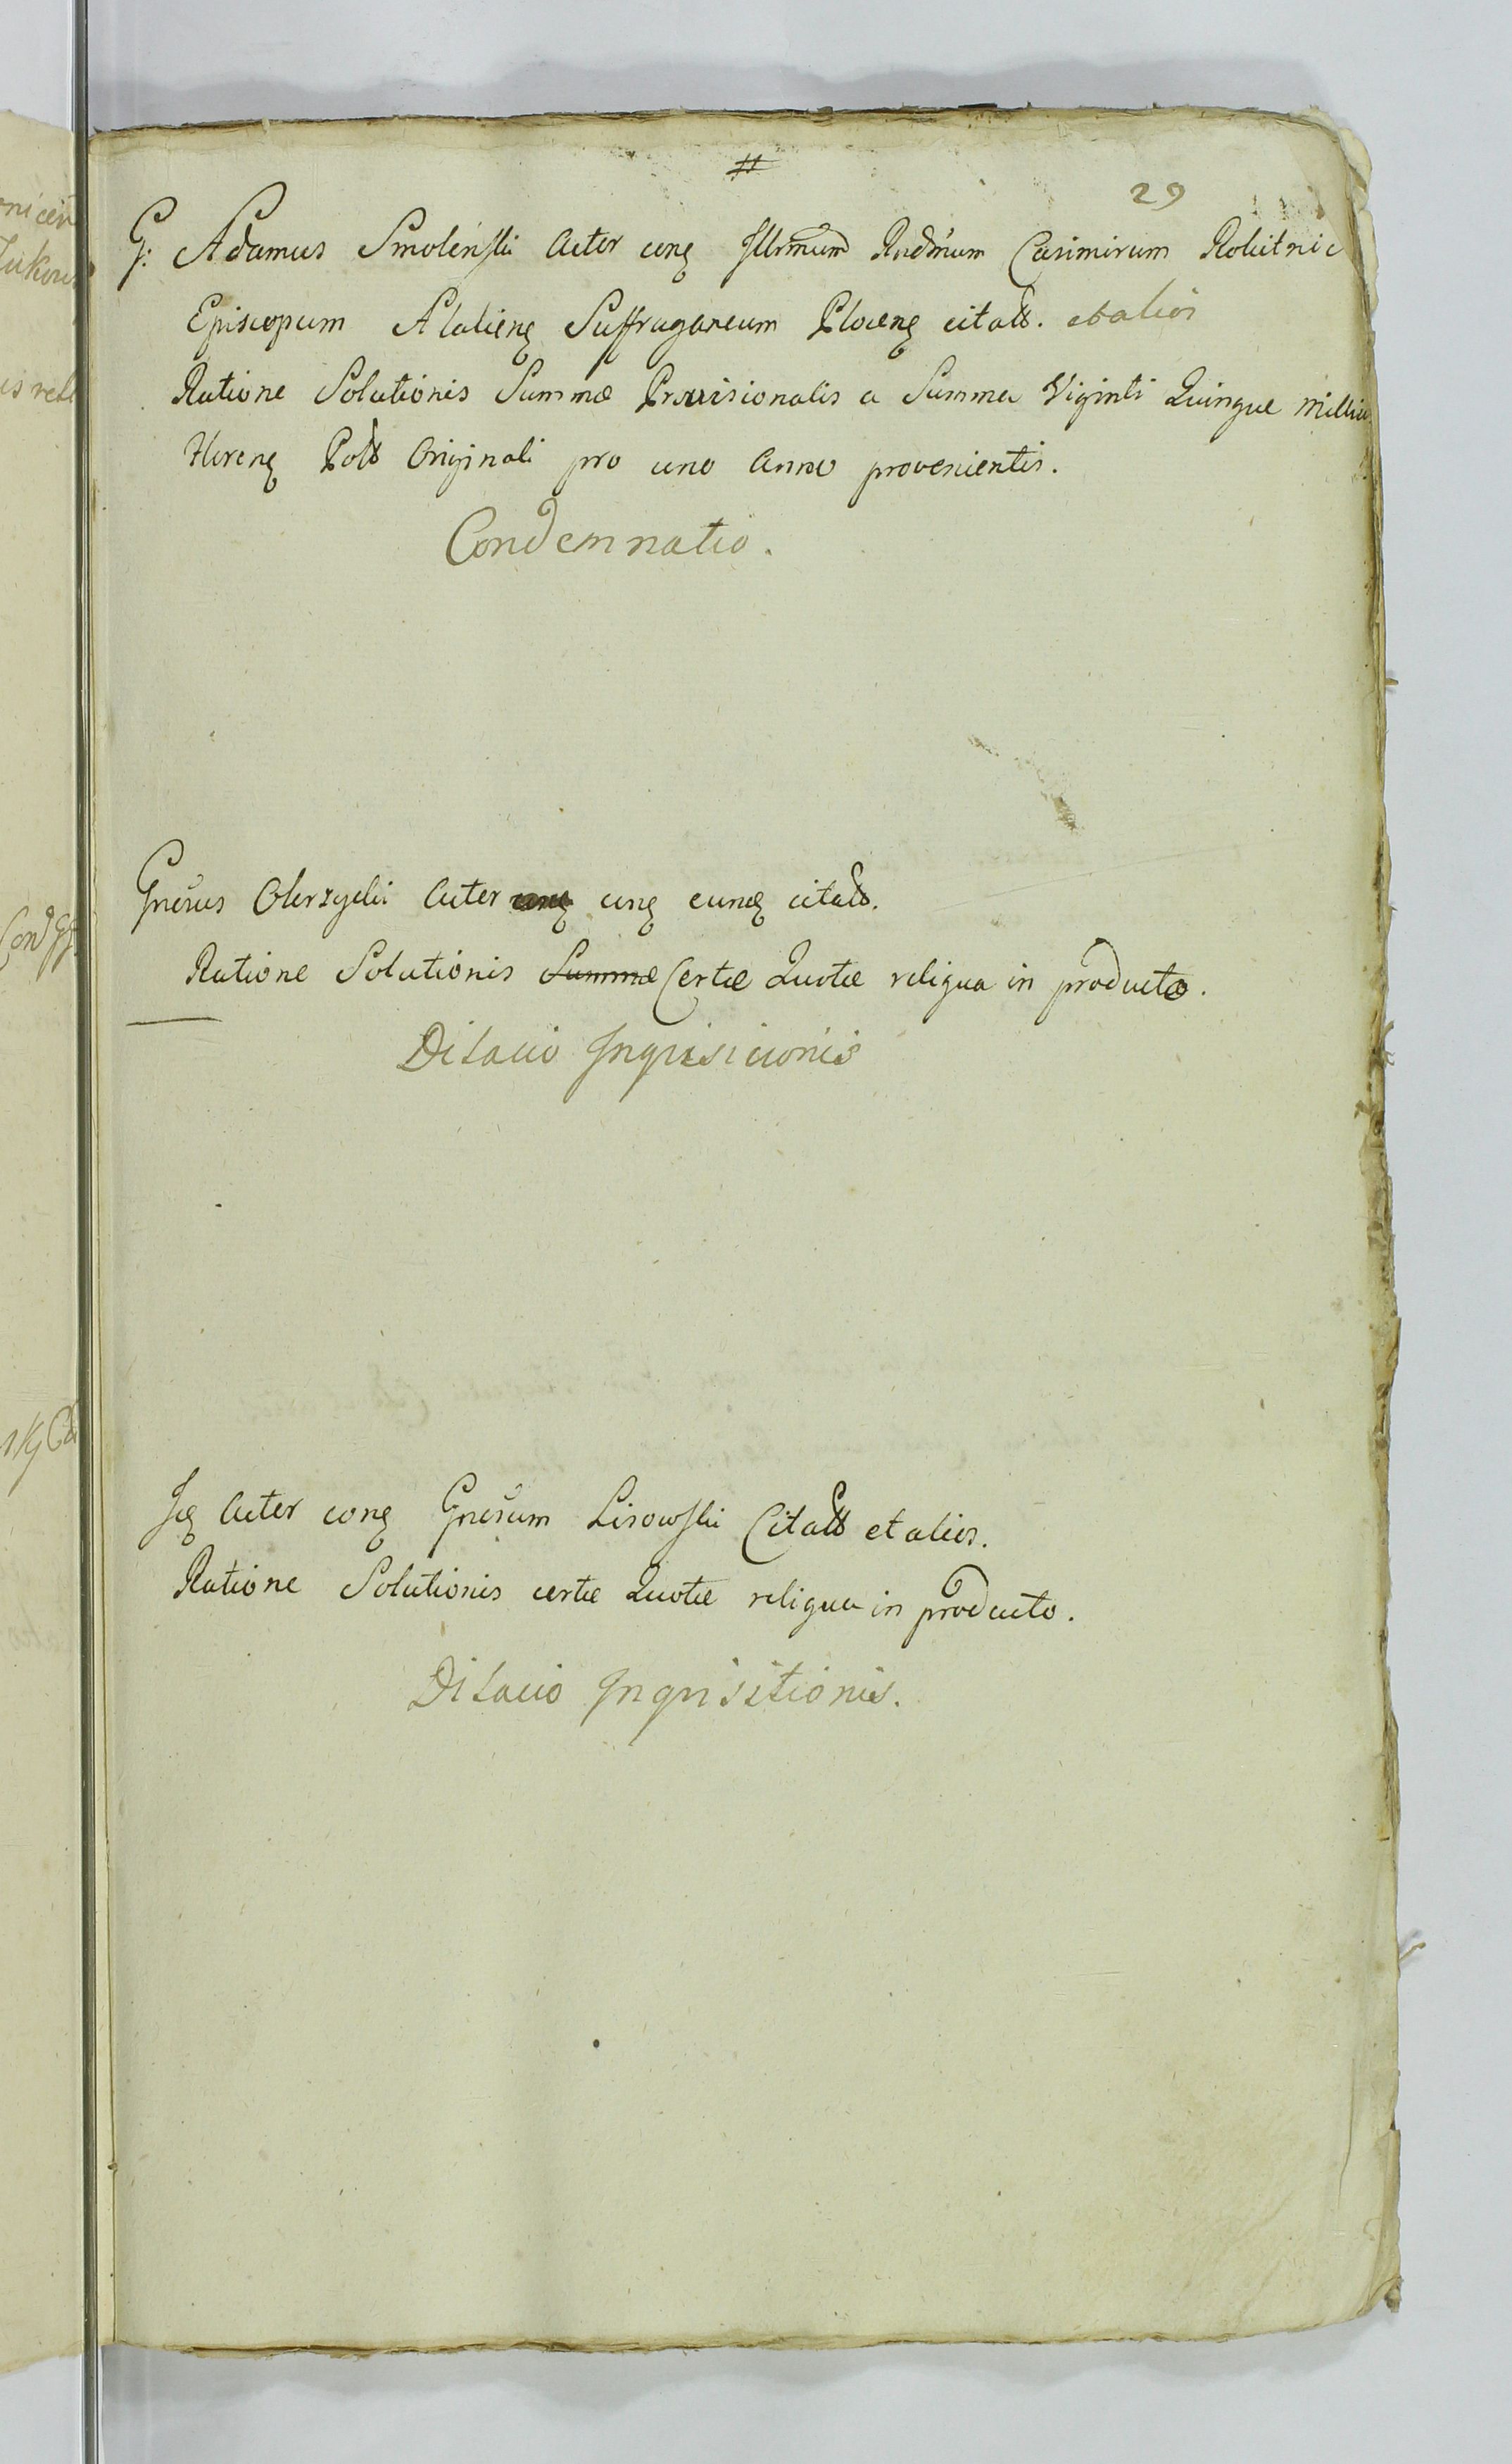 #
29
G: Adamus Smolenski Actor conq Illrmum Rndmum Casimirum Rokitnic
Episcopum Alalienq Suffraganeum Plocenq citatt. et alios
Ratione Solutionis Summæ Provisionalis a Summa Viginti Quinque Millium
florenq Poll Originali pro uno Anno provenientis.
Condemnatio.
Gnesus Actor conq eunq citatt.
Ratione Solutionis Summæ Certæ Quotæ reliqua in producto.
Dilacio Inquisicionis
Iq Actor conq Gnesum Lisowski Citatt et alios.
Ratione Solutionis certæ Quotæ reliqua in producto.
Dilacio Inquisitionis.